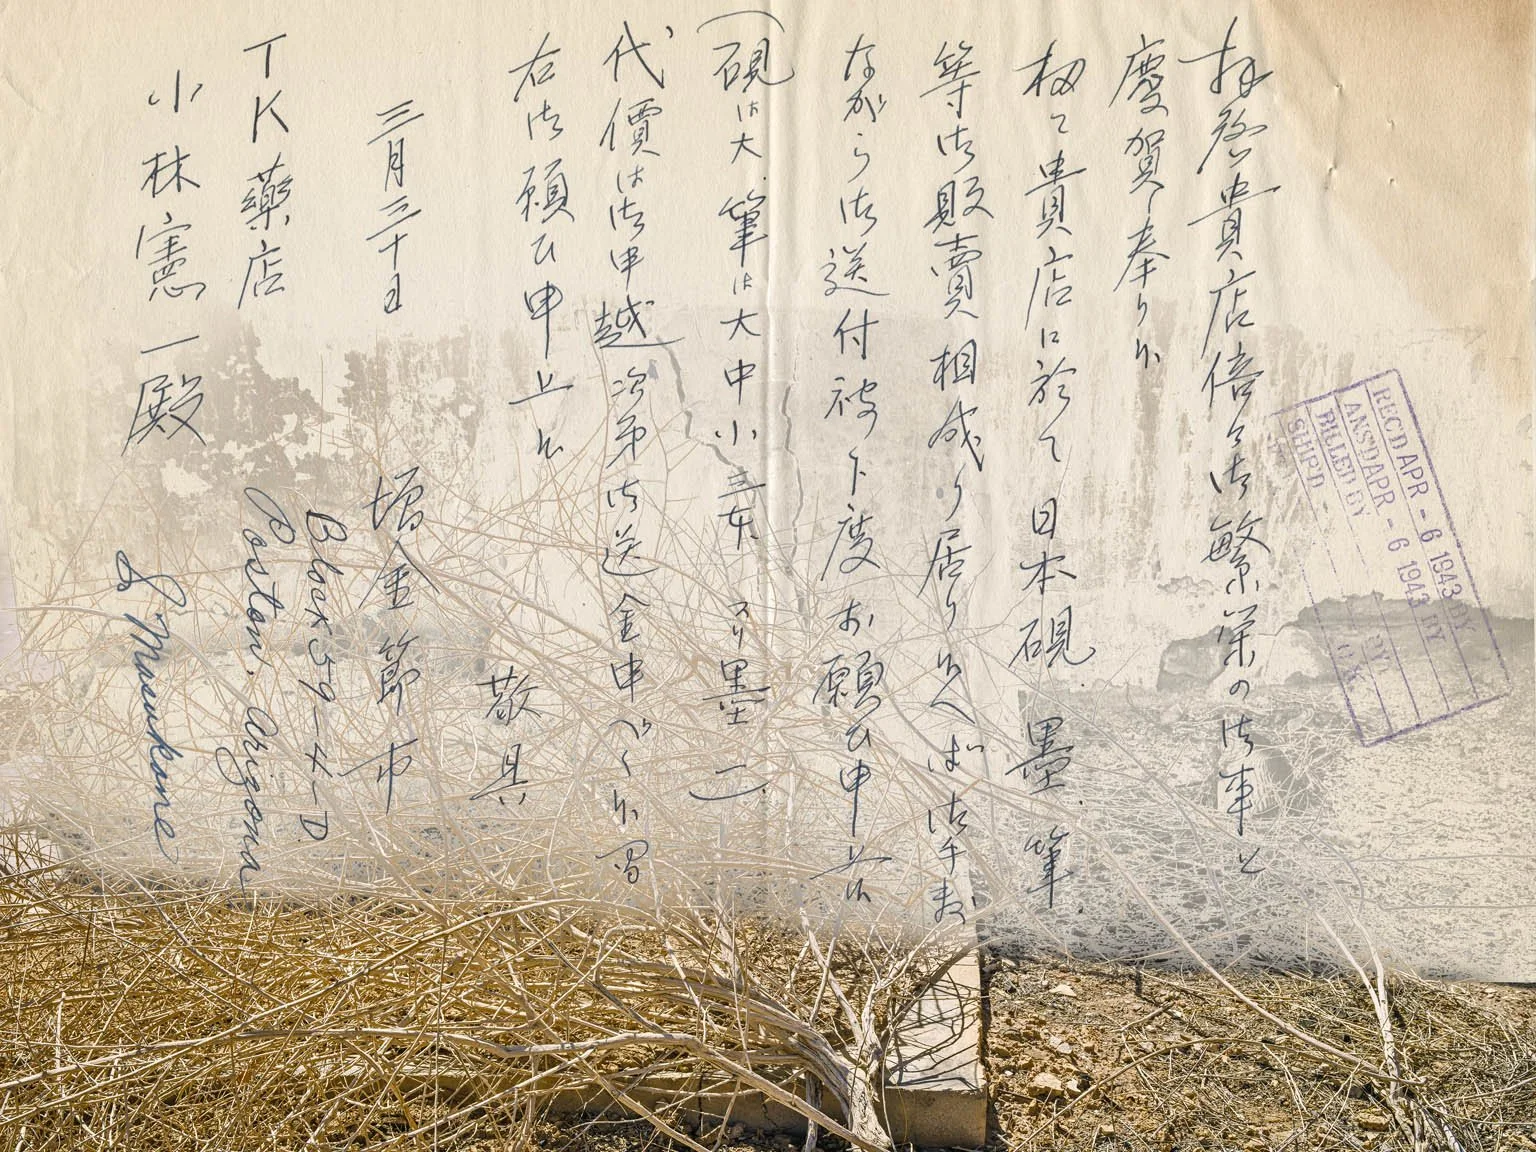 拝啓貴店倍々御繁栄の御事と
慶賀し奉り候
扨て貴店に於て日本硯、墨、筆
等御販賣相成り居り候へば御手数
ながら御送付被下度お願ひ申上候
(硯は大、筆は大中小三本 スリ墨二)
代價は御申越次第御送金申べく候間
右御願ひ申上候
敬具
三月三十日
増金節市
Block 59-4-D
Poston, Arizona
S Masukane
TK藥店
小林憲一殿
REC'D APR - 6 1943 BY
ANS'D APR - 6 1943 BY
BILLED BY
SHIP'D - BY